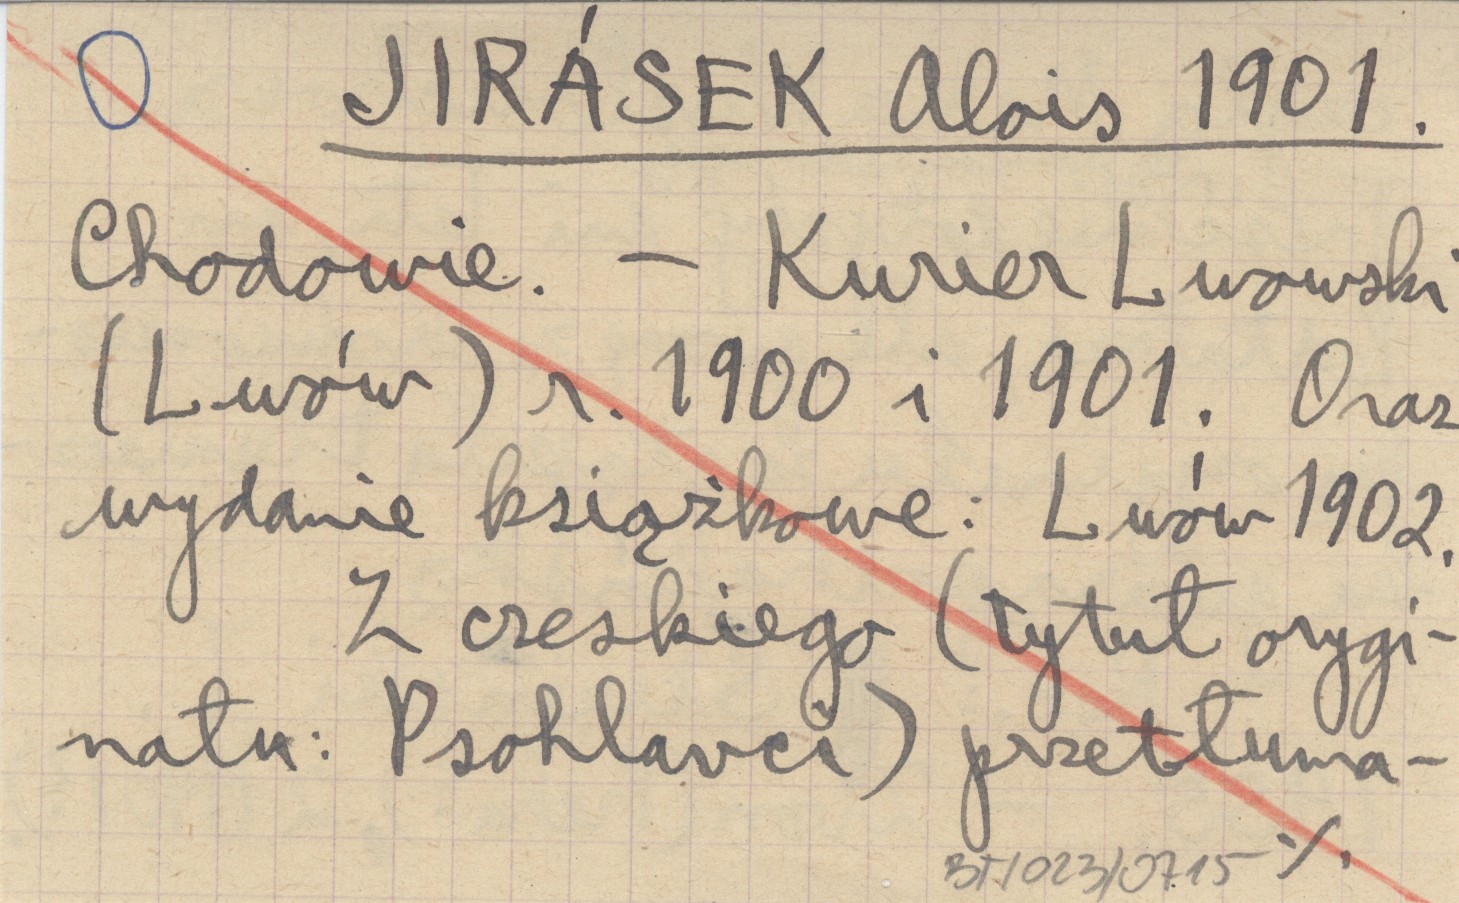 JIRÁSEK Alois 1901.
Chodowie. — Kurier Lwowski
(Lwów) r. 1900 i 1901. Oraz
wydanie książkowe: Lwów 1902.
Z czeskiego (tytuł orygi-
nału: Psohlavci) przetłuma-
./.
BT/023/0715